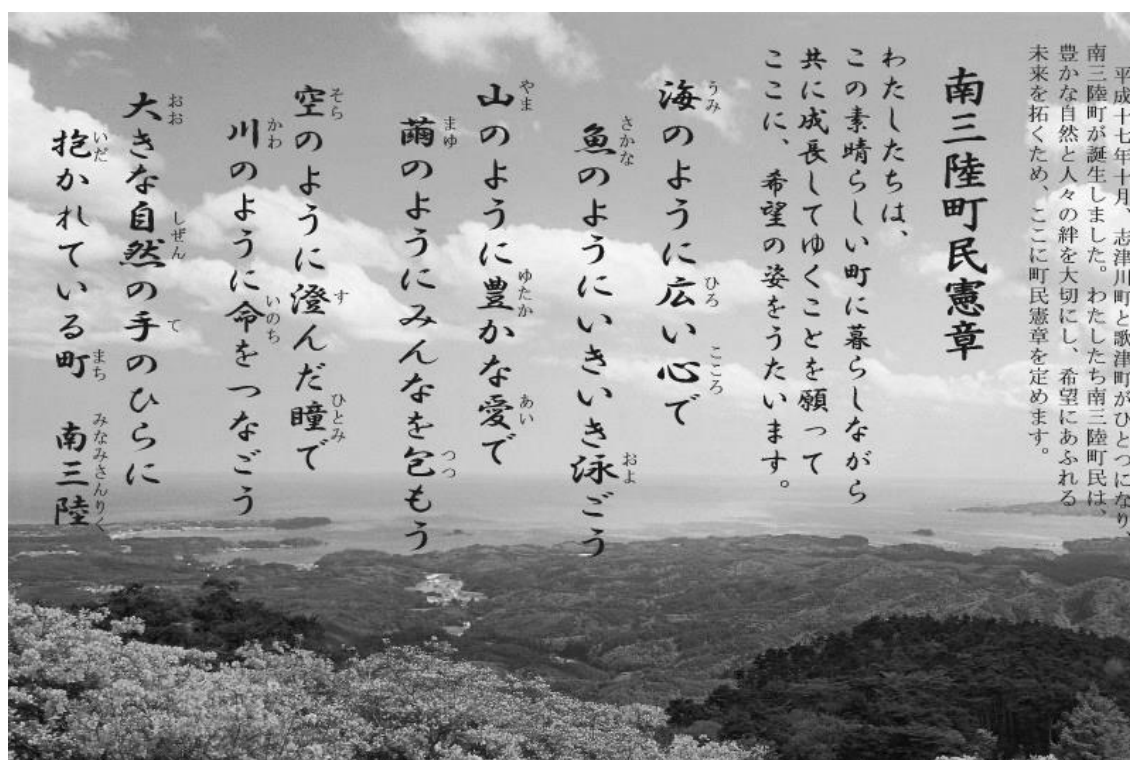 平成十七年十月、志津川町と歌津町がひとつになり、
南三陸町が誕生しました。わたしたち南三陸町民は、
豊かな自然と人々の絆を大切にし、希望にあふれる
未来を拓くため、ここに町民憲章を定めます。
南三陸町民憲章
わたしたちは、
この素晴らしい町に暮らしながら
共に成長してゆくことを願って
ここに、希望の姿をうたいます。
海のように広い心で
魚のようにいきいき泳ごう
山のように豊かな愛で
繭のようにみんなを包もう
空のように澄んだ瞳で
川のように命をつなごう
大きな自然の手のひらに
抱かれている町 南三陸